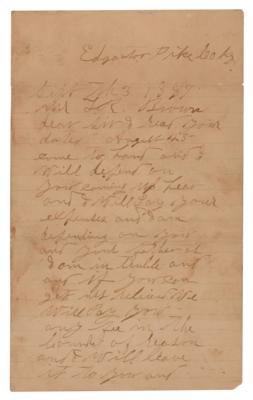 Pike Co Ky
Sept 3 1887
Mr Brown
dear Sir I your
dated August 23
come to hand and I
will depend on
you coming up hear
and I will pay your
expenses and am
depending on you
and your father I
am in truble and
and if you can
get us relieve we
will pay you
any fee in the
bounds of reason
and I will leave
it to you and